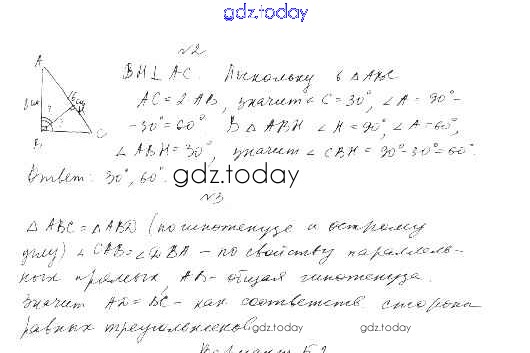 gdz.today
№2
BH⊥AC. Поскольку в △ABC
AC=2AB, значит ∠C=30°, ∠A=90°-
-30°=60°. В △ABH ∠H=90°, ∠A=60°,
∠ABH=30°, значит ∠CBH=90°-30°=60°.
Ответ: 30°, 60°. gdz.today
№3
△ABC=△ABD (по гипотенузе и острому
углу) ∠CAB=∠DBA – по свойству параллель-
ных прямых, AB – общая гипотенуза.
Значит AD=BC – как соответств. стороны
равных треугольников gdz.today gdz.today
Вариант Б2